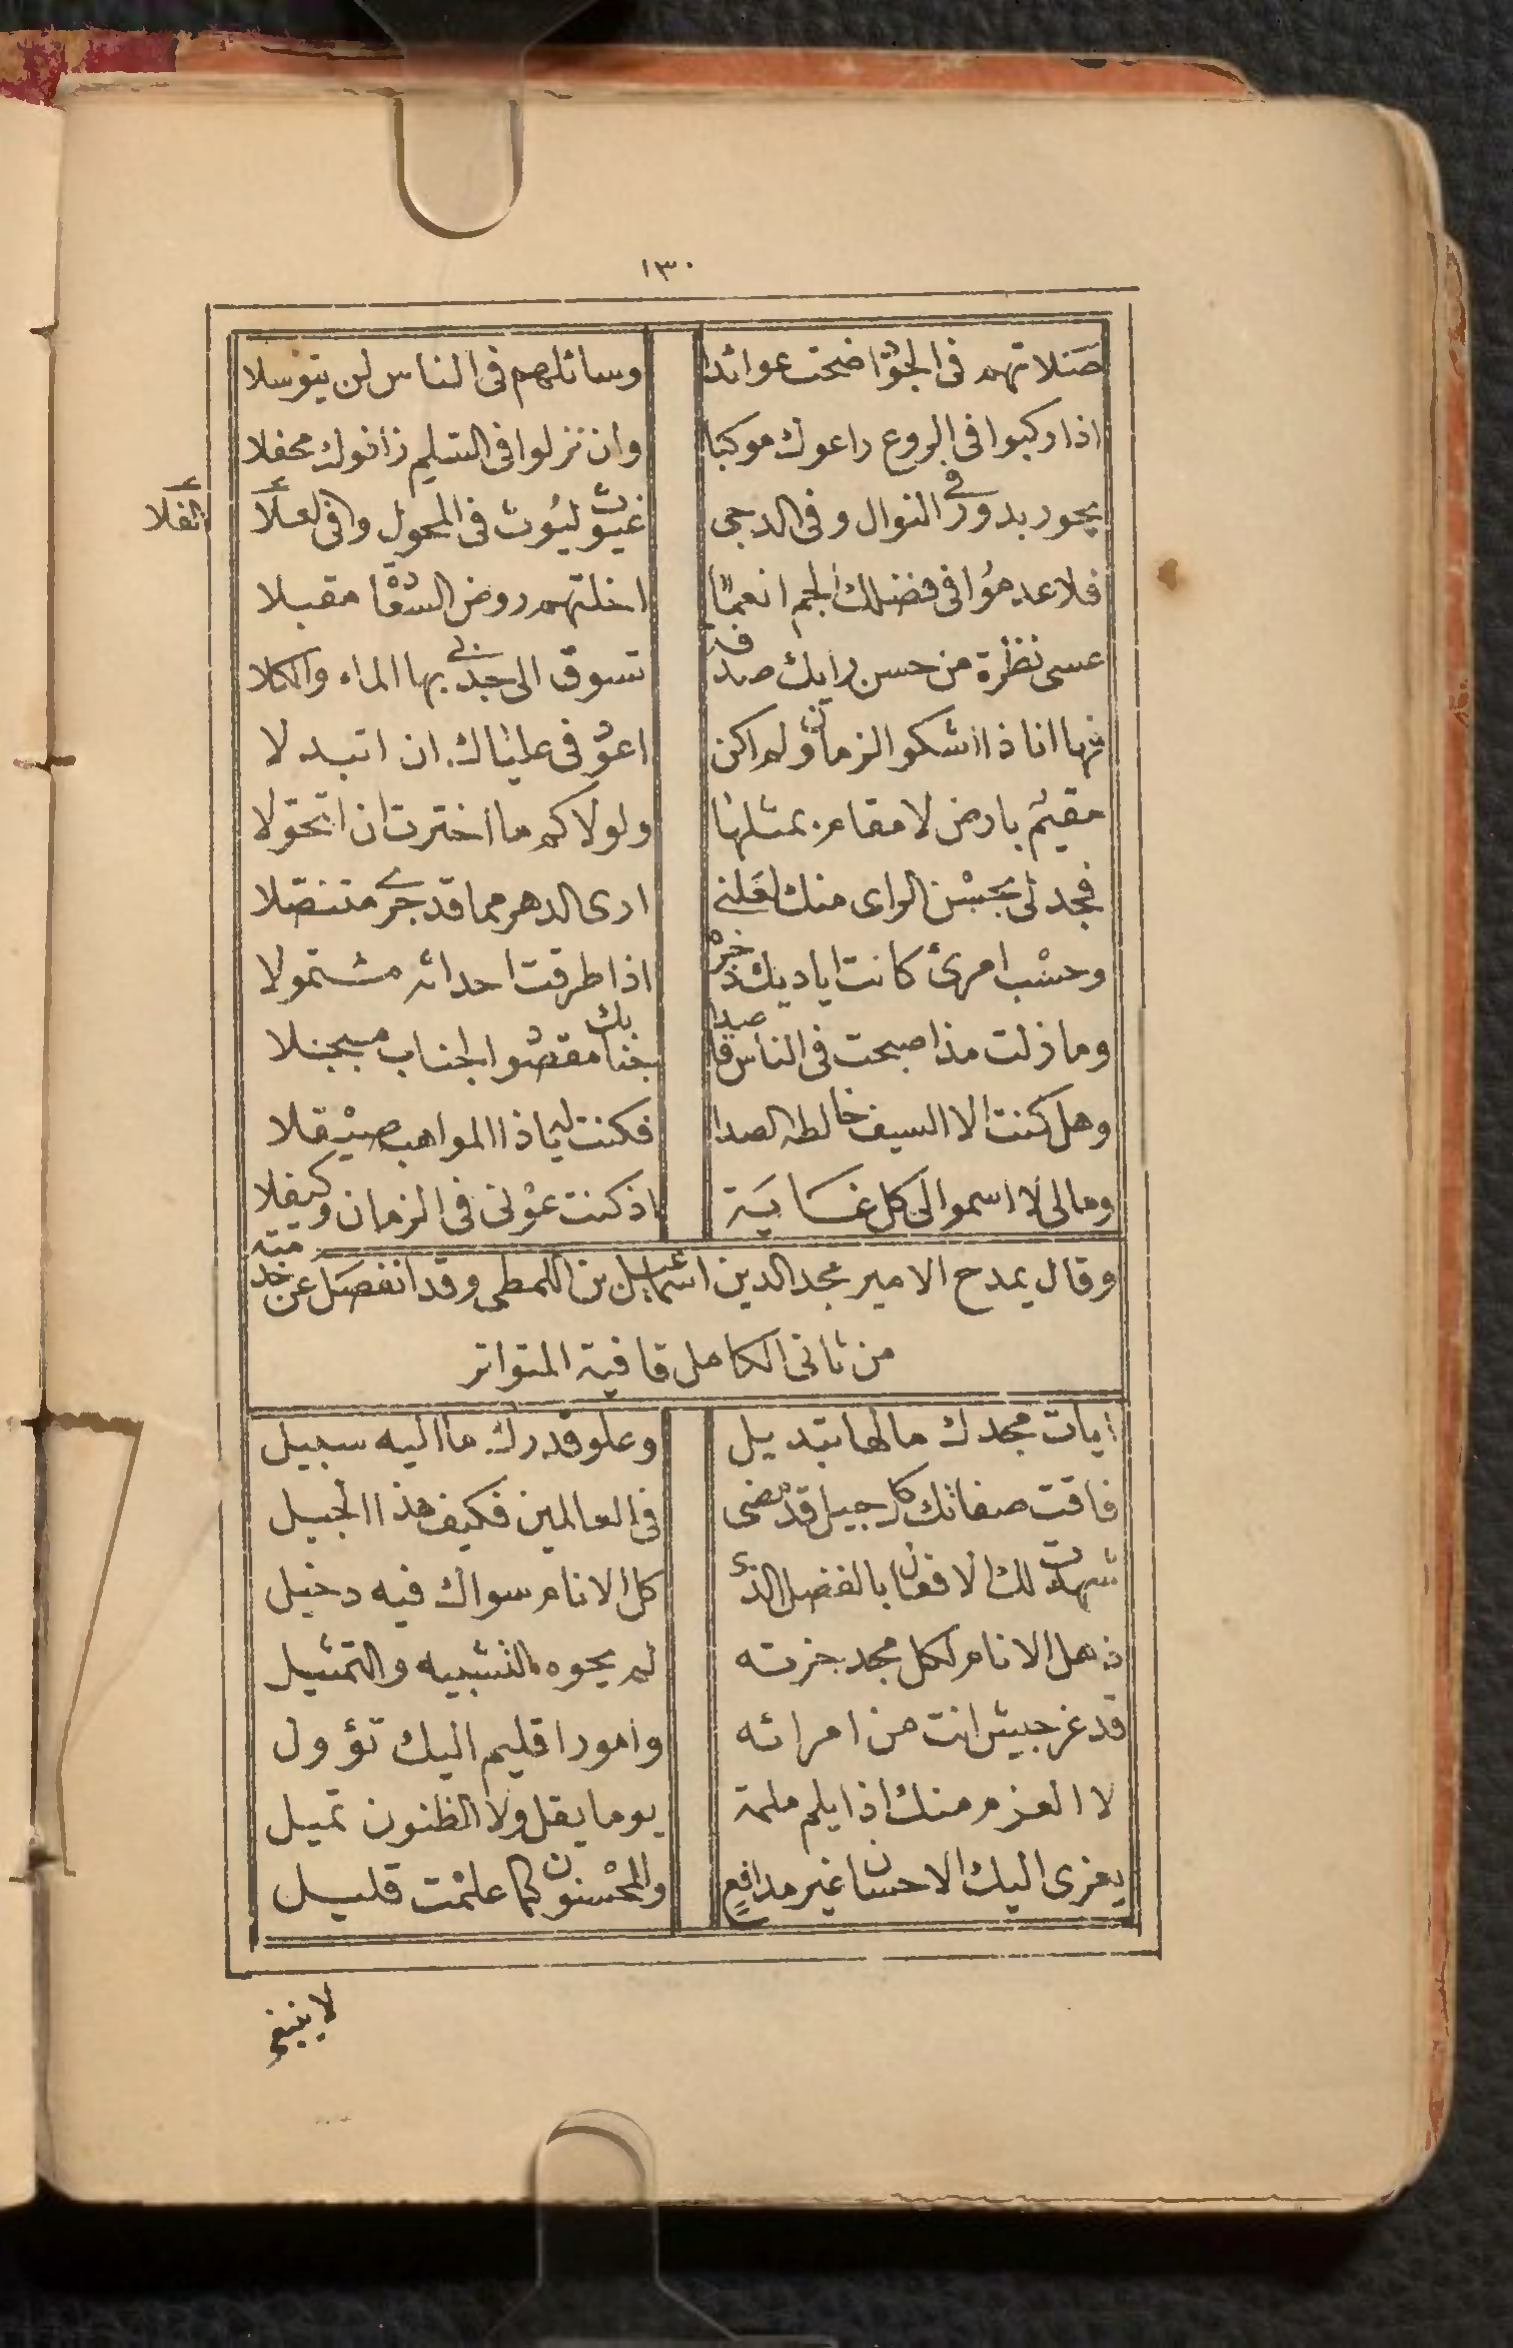 ١٣٠
صلاتهم فى الجود اضحت عوائدا وسائلهم فى الناس لن يتوسلا
اذا ركبوا فى الروع راعوك موكبا وان نزلوا فى السلم زانوك محفلا
بحور بدور فى النوال وفى الدجى غيوث ليوث فى المحول وفى العلا
الفلا
فلا عدموا فى فضلك الجم انعما اخلتهم روض السعود مقبلا
عسى نظرة من حسن رايك صدفة تسوق الى جدبى بها الماء والكلا
فها انا ذا اشكو الزمان ولم اكن اعود فى علياك ان اتبدلا
مقيم بارض لا مقام بمثلها ولولاكم ما اخترت ان اتحولا
فجد لى بحسن الراى منك لعلنى ارى الدهر مما قد جرى متنصلا
وحسب امرئ كانت اياديك ذخره اذا طرقت احداثه متمولا
وما زلت مذ اصبحت فى الناس قاصدا جنابك مقصود الجناب مبجلا
وهل كنت الا السيف خالطه الصدا فكنت له ياذا المواهب صيقلا
ومالى لا اسمو الى كل غاية اذ كنت عونى فى الزمان وكيفلا
وقال يمدح الامير مجد الدين اسمعيل بن اللمطى وقد انفصل عن خدمته
من ثانى الكامل قافية المتواتر
ايات مجدك مالها تبديل وعلو قدرك ما اليه سبيل
فاقت صفاتك كل جيل قد مضى فى العالمين فكيف هذا الجيل
شهدت لك الافعال بالفضل الذى كل الانام سواك فيه دخيل
ذهل الانام لكل مجد حزته لم يحوه التشبيه والتمثيل
قد عز جيش انت من امرائه وامور اقليم اليك تؤول
لا العزم منك اذا يلم ملمة يوما يقل ولا الظنون تميل
يعزى اليك الاحسان غير مدافع والمحسنون كما علمت قليل
لا ينبغى